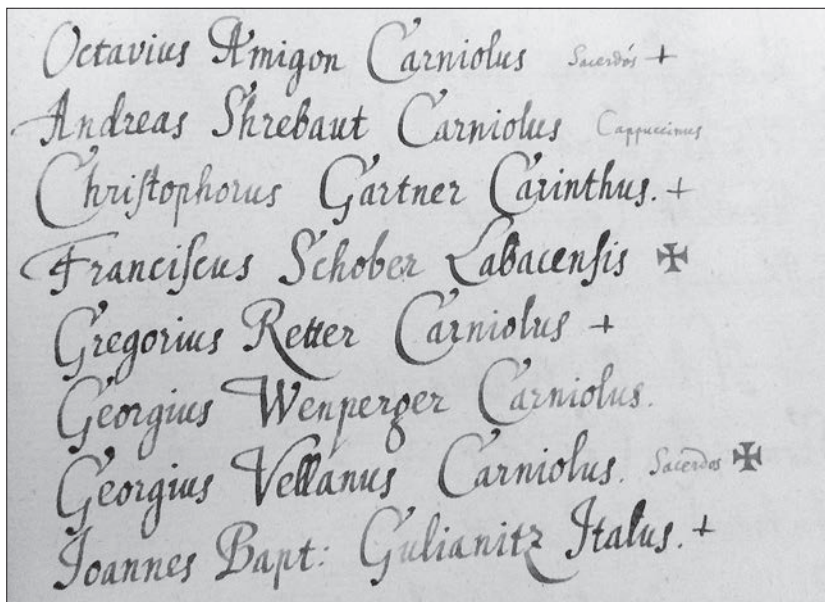 Octavius Amigon Carniolus Sacerdos +
Andreas Shrebaut Carniolus Cappuccinus
Chriſtophorus Gartner Carinthus. +
Franciſcus Schober Labacenſis ✠
Gregorius Retter Carniolus +
Georgius Wenperger Carniolus.
Georgius Vellanus Carniolus. Sacerdos ✠
Joannes Bapt: Gulianitz Italus. +